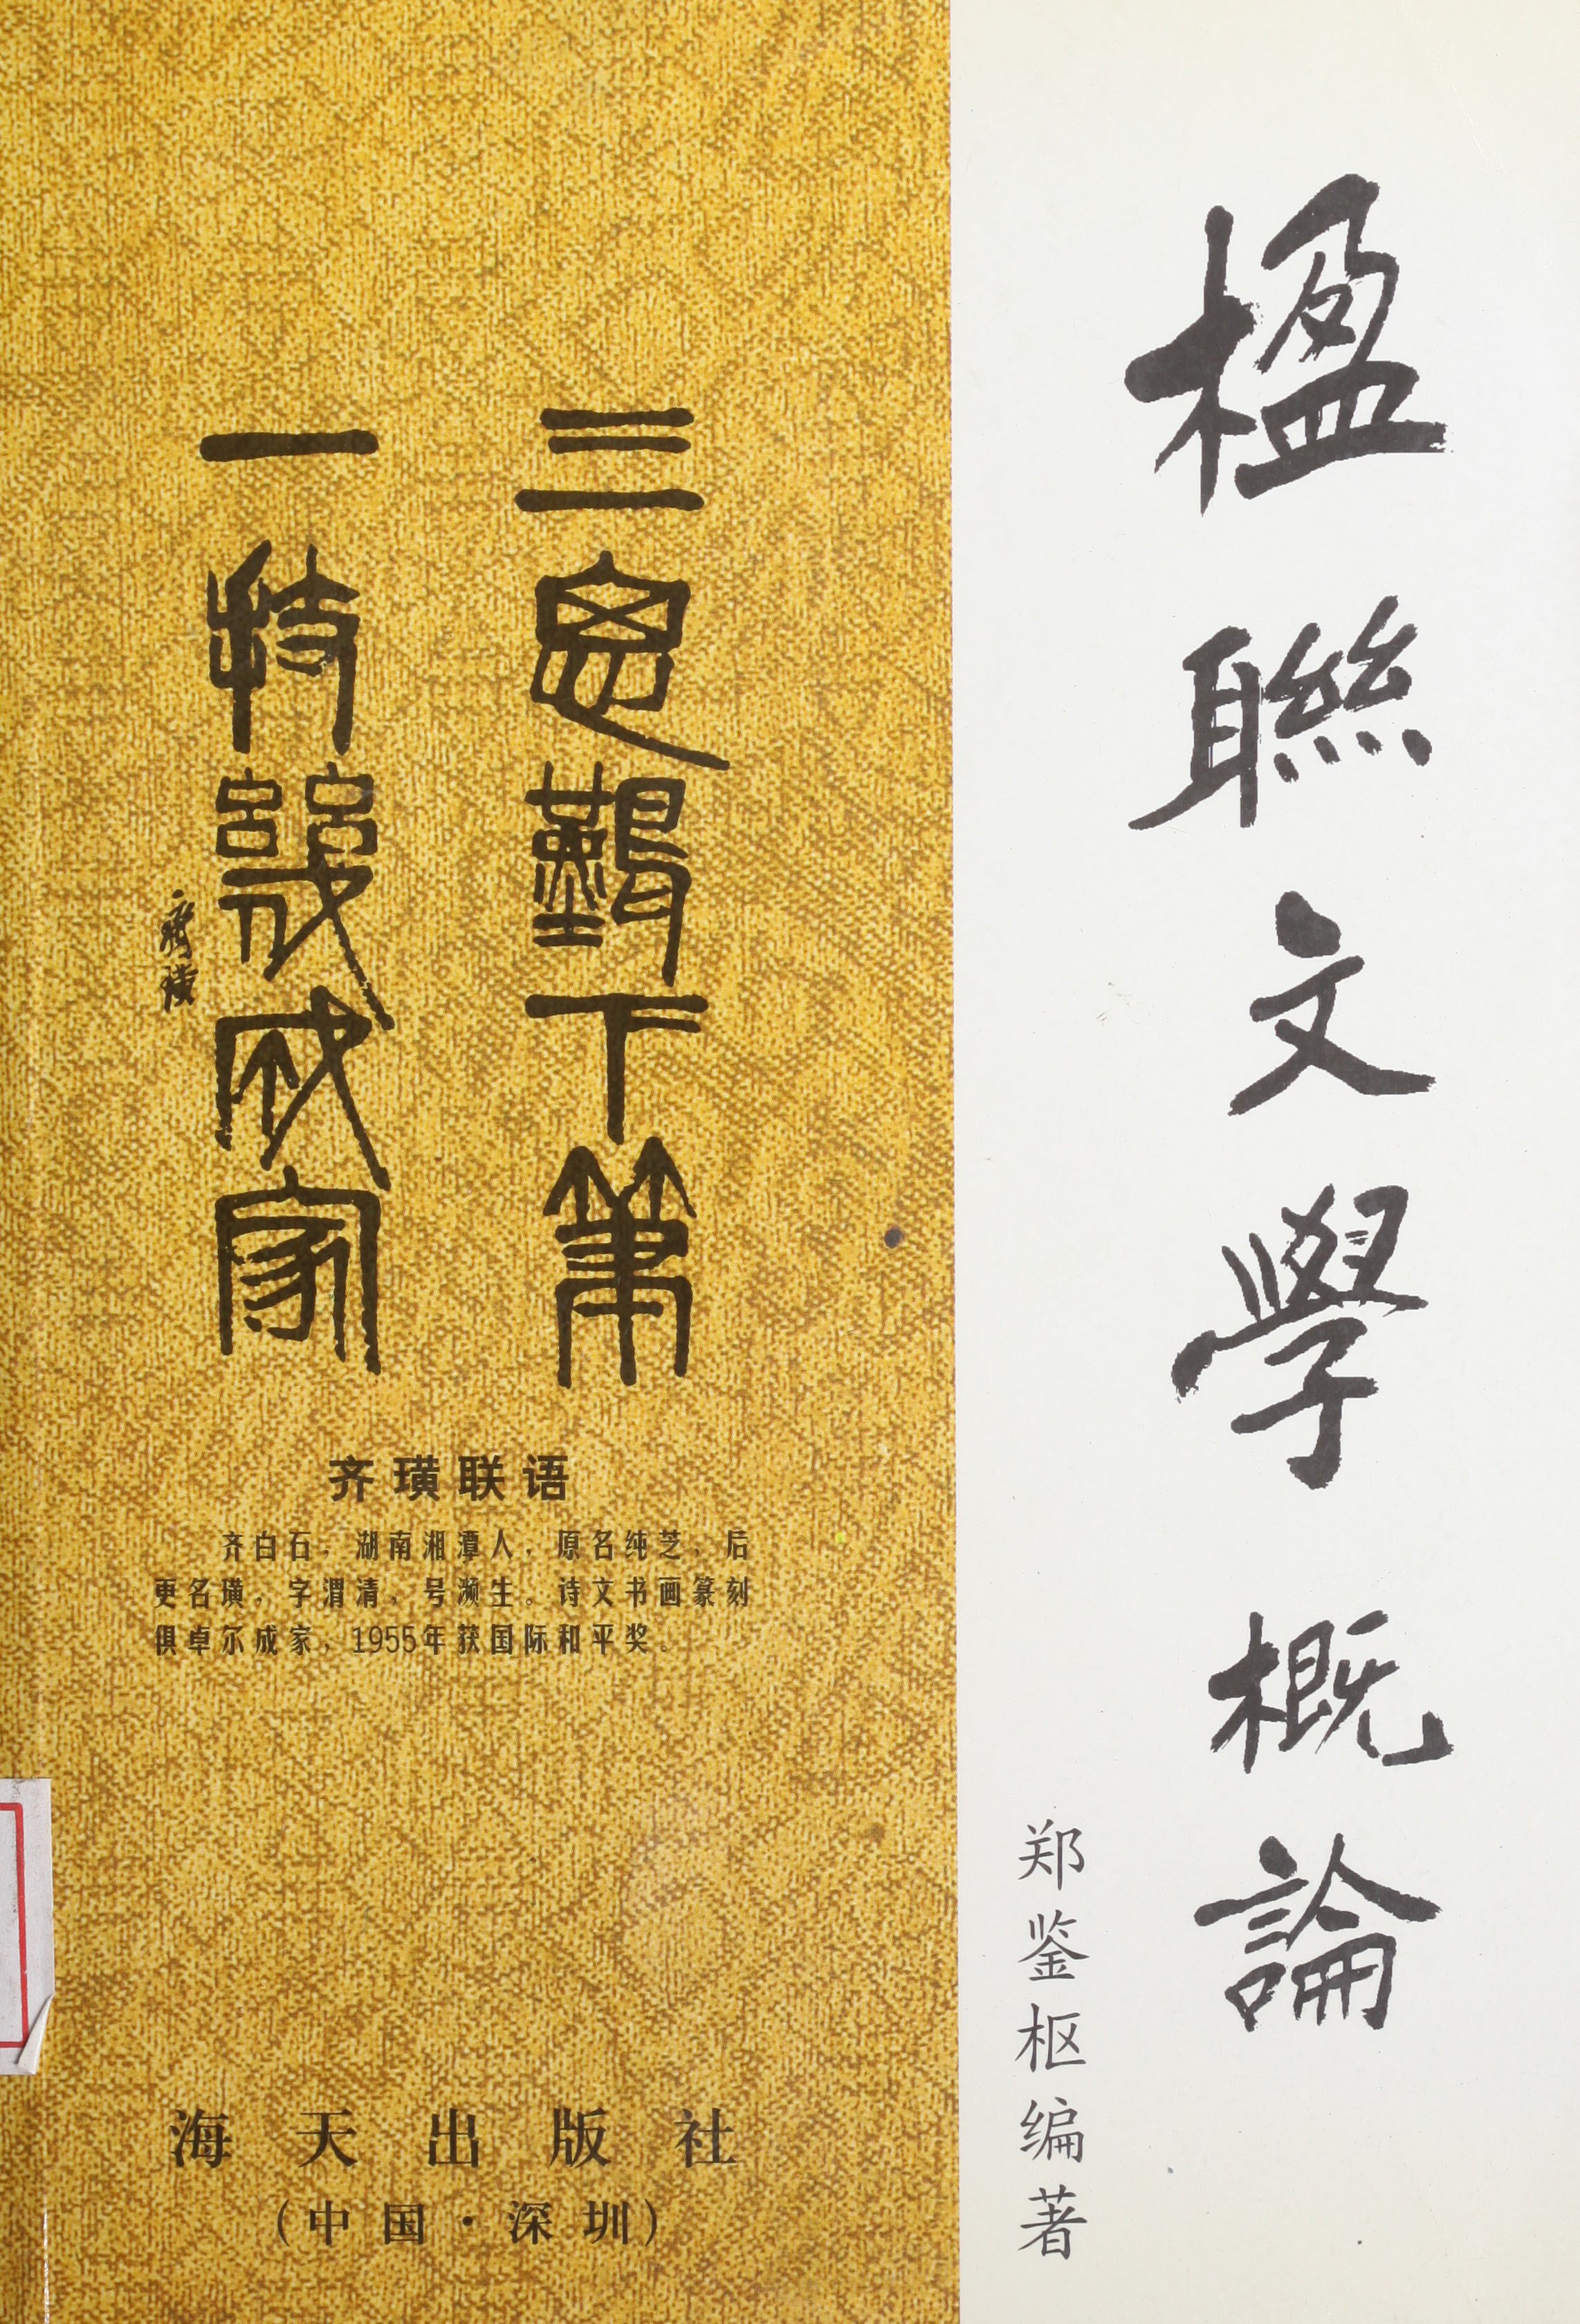 楹聯文學概論
郑鉴枢编著
三思難下筆
一技幾成家
齊璜
齐璜联语
齐白石，湖南湘潭人，原名纯芝，后
更名璜，字渭清，号濒生。诗文书画篆刻
俱卓尔成家，1955年获国际和平奖。
海天出版社
（中国·深圳）